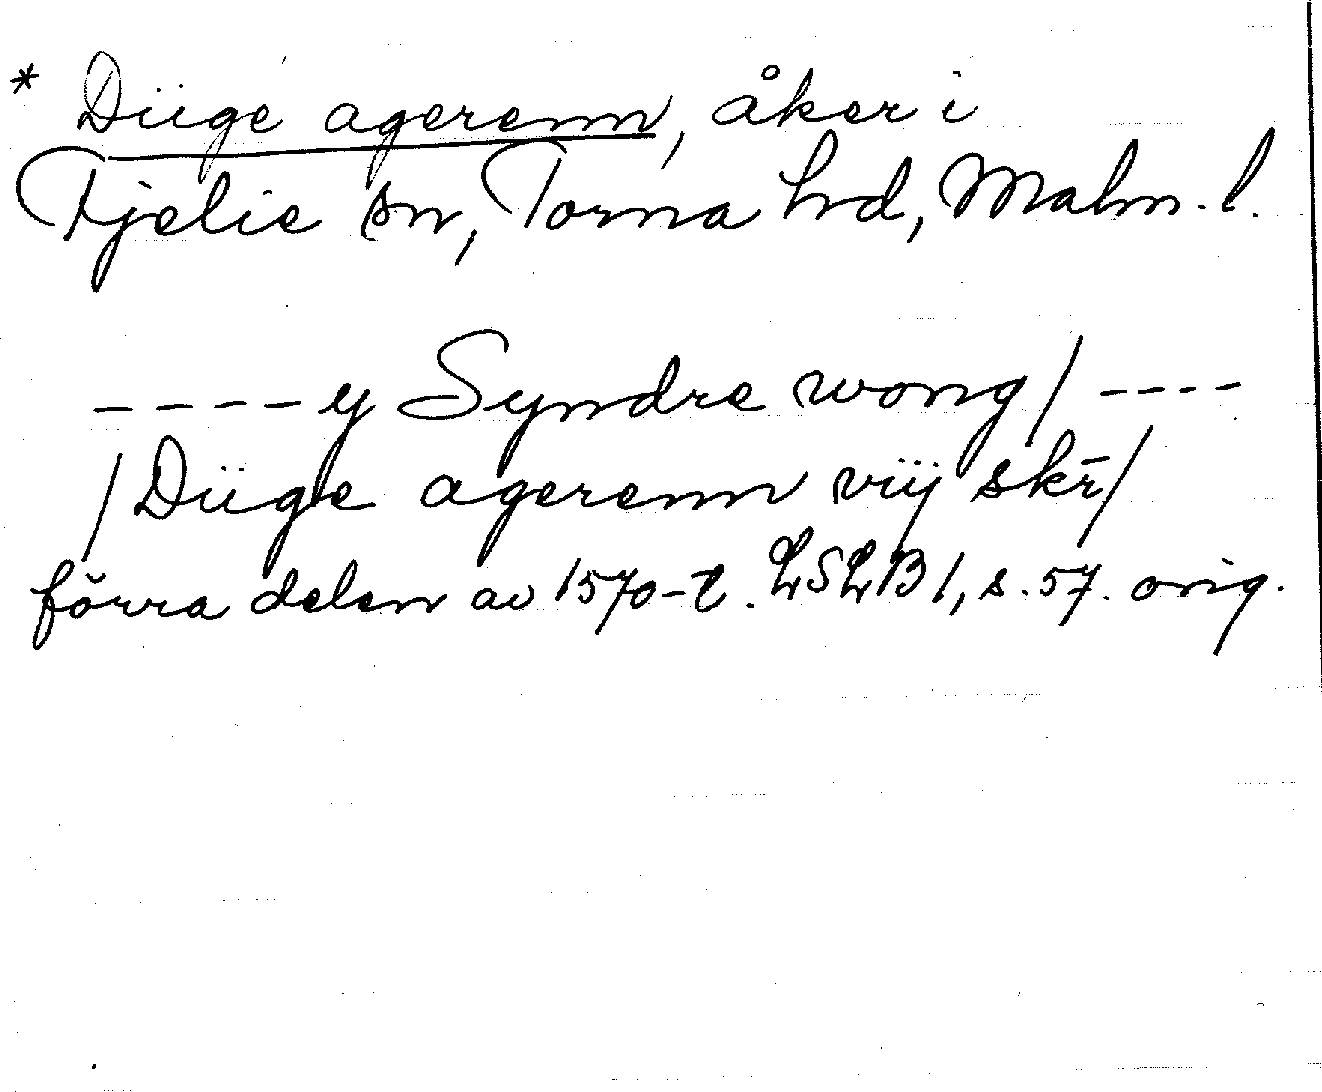 * Düge agerenn, åker i
Fjelie sn, Torna hd, Malm. l.
----y Syndre wong/ ----
/Düge agerenn vijj skr̄/
förra delen av 1570-t. LSLB 1, s. 57. orig.